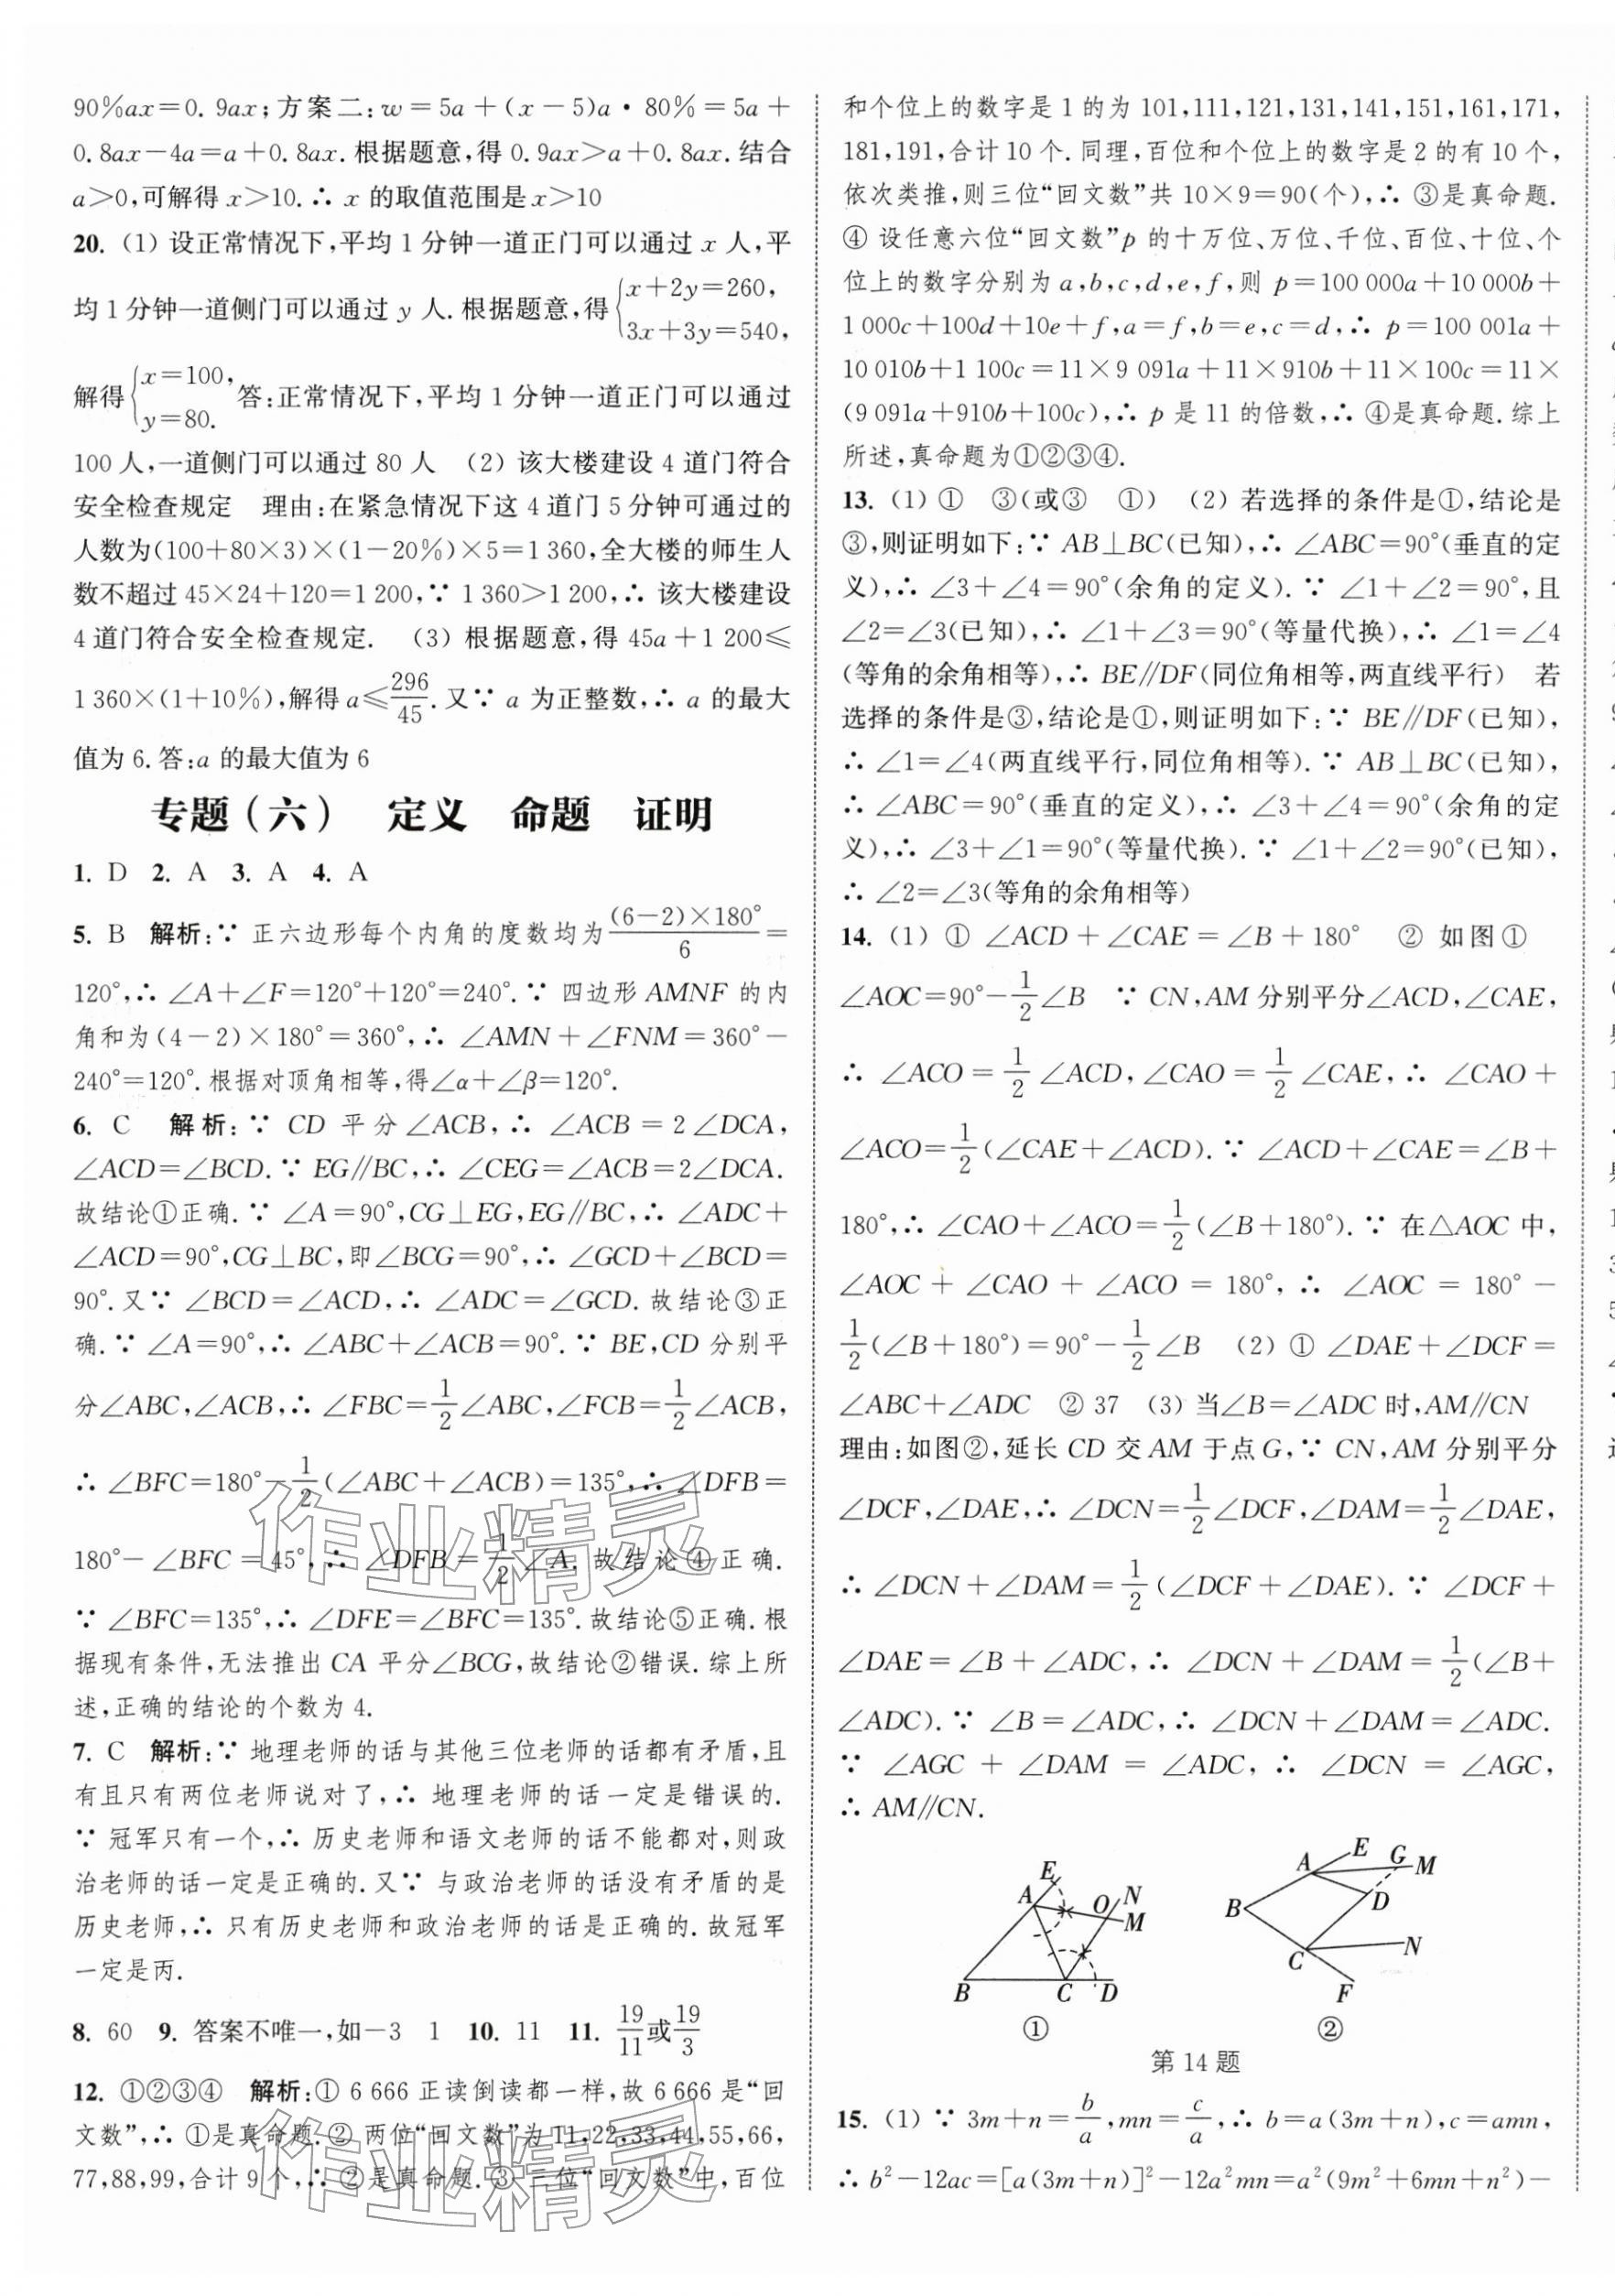 90%ax=0.9ax;方案二:w=5a+(x-5)a·80%=5a+
0.8ax-4a=a+0.8ax.根据题意,得0.9ax>a+0.8ax.结合
a>0,可解得x>10.∴ x的取值范围是x>10
20. (1) 设正常情况下,平均1分钟一道正门可以通过x人,平
均1分钟一道侧门可以通过y人.根据题意,得{x+2y=260, 3x+3y=540,
解得{x=100, y=80. 答:正常情况下,平均1分钟一道正门可以通过
100人,一道侧门可以通过80人 (2) 该大楼建设4道门符合
安全检查规定 理由:在紧急情况下这4道门5分钟可通过的
人数为(100+80×3)×(1-20%)×5=1 360,全大楼的师生人
数不超过45×24+120=1 200,∵ 1 360>1 200,∴ 该大楼建设
4道门符合安全检查规定. (3) 根据题意,得45a+1 200≤
1 360×(1+10%),解得a≤296/45.又∵ a为正整数,∴ a的最大
值为6.答:a的最大值为6
专题(六) 定义 命题 证明
1. D 2. A 3. A 4. A
5. B 解析:∵ 正六边形每个内角的度数均为(6-2)×180°/6=
120°,∴ ∠A+∠F=120°+120°=240°.∵ 四边形AMNF的内
角和为(4-2)×180°=360°,∴ ∠AMN+∠FNM=360°-
240°=120°.根据对顶角相等,得∠α+∠β=120°.
6. C 解析:∵ CD平分∠ACB,∴ ∠ACB=2∠DCA,
∠ACD=∠BCD.∵ EG∥BC,∴ ∠CEG=∠ACB=2∠DCA.
故结论①正确.∵ ∠A=90°,CG⊥EG,EG∥BC,∴ ∠ADC+
∠ACD=90°,CG⊥BC,即∠BCG=90°,∴ ∠GCD+∠BCD=
90°.又∵ ∠BCD=∠ACD,∴ ∠ADC=∠GCD.故结论③正
确.∵ ∠A=90°,∴ ∠ABC+∠ACB=90°.∵ BE,CD分别平
分∠ABC,∠ACB,∴ ∠FBC=1/2∠ABC,∠FCB=1/2∠ACB,
∴ ∠BFC=180°-1/2(∠ABC+∠ACB)=135°,∴ ∠DFB=
180°-∠BFC=45°,∴ ∠DFB=1/2∠A.故结论④正确.
∵ ∠BFC=135°,∴ ∠DFE=∠BFC=135°.故结论⑤正确.根
据现有条件,无法推出CA平分∠BCG,故结论②错误.综上所
述,正确的结论的个数为4.
7. C 解析:∵ 地理老师的话与其他三位老师的话都有矛盾,且
有且只有两位老师说对了,∴ 地理老师的话一定是错误的.
∵ 冠军只有一个,∴ 历史老师和语文老师的话不能都对,则政
治老师的话一定是正确的.又∵ 与政治老师的话没有矛盾的是
历史老师,∴ 只有历史老师和政治老师的话是正确的.故冠军
一定是丙.
8. 60 9. 答案不唯一,如-3 1 10. 11 11. 19/11或19/3
12. ①②③④ 解析:① 6 666正读倒读都一样,故6 666是“回
文数”,∴ ①是真命题.② 两位“回文数”为11,22,33,44,55,66,
77,88,99,合计9个,∴ ②是真命题.③ 三位“回文数”中,百位
和个位上的数字是1的为101,111,121,131,141,151,161,171,
181,191,合计10个.同理,百位和个位上的数字是2的有10个,
依次类推,则三位“回文数”共10×9=90(个),∴ ③是真命题.
④ 设任意六位“回文数”p的十万位、万位、千位、百位、十位、个
位上的数字分别为a,b,c,d,e,f,则p=100 000a+10 000b+
1 000c+100d+10e+f,a=f,b=e,c=d,∴ p=100 001a+
10 010b+1 100c=11×9 091a+11×910b+11×100c=11×
(9 091a+910b+100c),∴ p是11的倍数,∴ ④是真命题.综上
所述,真命题为①②③④.
13. (1) ① ③(或③ ①) (2) 若选择的条件是①,结论是
③,则证明如下:∵ AB⊥BC(已知),∴ ∠ABC=90°(垂直的定
义),∴ ∠3+∠4=90°(余角的定义).∵ ∠1+∠2=90°,且
∠2=∠3(已知),∴ ∠1+∠3=90°(等量代换),∴ ∠1=∠4
(等角的余角相等),∴ BE∥DF(同位角相等,两直线平行) 若
选择的条件是③,结论是①,则证明如下:∵ BE∥DF(已知),
∴ ∠1=∠4(两直线平行,同位角相等).∵ AB⊥BC(已知),
∴ ∠ABC=90°(垂直的定义),∴ ∠3+∠4=90°(余角的定
义),∴ ∠3+∠1=90°(等量代换).∵ ∠1+∠2=90°(已知),
∴ ∠2=∠3(等角的余角相等)
14. (1) ① ∠ACD+∠CAE=∠B+180° ② 如图①
∠AOC=90°-1/2∠B ∵ CN,AM分别平分∠ACD,∠CAE,
∴ ∠ACO=1/2∠ACD,∠CAO=1/2∠CAE,∴ ∠CAO+
∠ACO=1/2(∠CAE+∠ACD).∵ ∠ACD+∠CAE=∠B+
180°,∴ ∠CAO+∠ACO=1/2(∠B+180°).∵ 在△AOC中,
∠AOC+∠CAO+∠ACO=180°,∴ ∠AOC=180°-
1/2(∠B+180°)=90°-1/2∠B (2) ① ∠DAE+∠DCF=
∠ABC+∠ADC ② 37 (3) 当∠B=∠ADC时,AM∥CN
理由:如图②,延长CD交AM于点G,∵ CN,AM分别平分
∠DCF,∠DAE,∴ ∠DCN=1/2∠DCF,∠DAM=1/2∠DAE,
∴ ∠DCN+∠DAM=1/2(∠DCF+∠DAE).∵ ∠DCF+
∠DAE=∠B+∠ADC,∴ ∠DCN+∠DAM=1/2(∠B+
∠ADC).∵ ∠B=∠ADC,∴ ∠DCN+∠DAM=∠ADC.
∵ ∠AGC+∠DAM=∠ADC,∴ ∠DCN=∠AGC,
∴ AM∥CN.
E A O N M B C D
①
A E G M B D C N F
②
第14题
15. (1) ∵ 3m+n=b/a,mn=c/a,∴ b=a(3m+n),c=amn,
∴ b²-12ac=[a(3m+n)]²-12a²mn=a²(9m²+6mn+n²)-
作业精灵
作业精灵